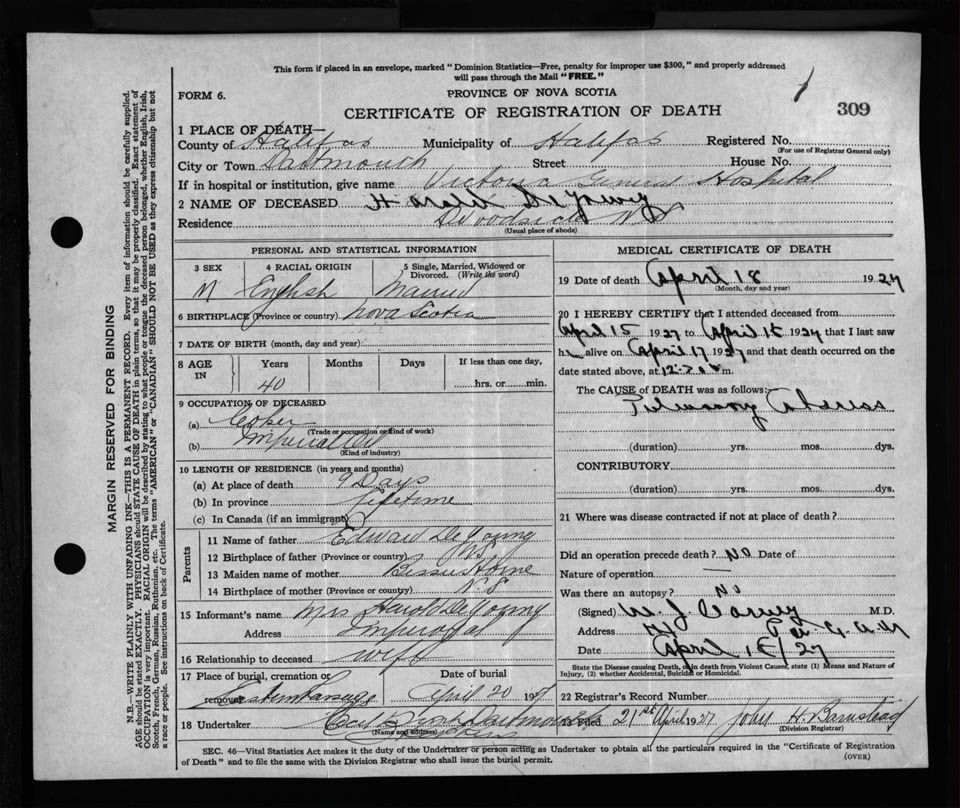 This form if placed in an envelope, marked "Dominion Statistics—Free, penalty for improper use $300," and properly addressed
will pass through the Mail "FREE."
FORM 6.
PROVINCE OF NOVA SCOTIA
1
309
CERTIFICATE OF REGISTRATION OF DEATH
1 PLACE OF DEATH—
County of Halifax Municipality of Halifax Registered No.
(For use of Registrar General only)
City or Town Dartmouth Street House No.
If in hospital or institution, give name Victoria General Hospital
2 NAME OF DECEASED Harold De Young
Residence Woodside N S
(Usual place of abode)
PERSONAL AND STATISTICAL INFORMATION
3 SEX 4 RACIAL ORIGIN 5 Single, Married, Widowed or Divorced. (Write the word)
M English Married
6 BIRTHPLACE (Province or country) Nova Scotia
7 DATE OF BIRTH (month, day and year)
8 AGE IN Years Months Days If less than one day,
40 hrs. or min.
9 OCCUPATION OF DECEASED
(a) Coker
(Trade or occupation or kind of work)
(b) Imperial Oil
(Kind of industry)
10 LENGTH OF RESIDENCE (in years and months)
(a) At place of death 9 Days
(b) In province Lifetime
(c) In Canada (if an immigrant)
Parents
11 Name of father Edward De Young
12 Birthplace of father (Province or country) N.S.
13 Maiden name of mother Bessie Horne
14 Birthplace of mother (Province or country) N.S
15 Informant's name Mrs Harold De Young
Address Imperoyal
16 Relationship to deceased wife
17 Place of burial, cremation or removal Date of burial
April 20 1927
18 Undertaker Dartmouth
(Name and address)
MEDICAL CERTIFICATE OF DEATH
19 Date of death April 18 1927
(Month, day and year)
20 I HEREBY CERTIFY that I attended deceased from
April 15 1927 to April 18 1927 that I last saw
h alive on April 17 1927 and that death occurred on the
date stated above, at m.
The CAUSE of DEATH was as follows:
Pulmonary Abscess
(duration) yrs. mos. dys.
CONTRIBUTORY
(duration) yrs. mos. dys.
21 Where was disease contracted if not at place of death?
Did an operation precede death? No Date of
Nature of operation —
Was there an autopsy? No
(Signed) M.D.
Address
Date April 18/27
State the Disease causing Death, or in death from Violent Causes, state (1) Means and Nature of
Injury, (2) whether Accidental, Suicidal or Homicidal.
22 Registrar's Record Number
Filed 21st April 1927 John H Barnstead
(Division Registrar)
SEC. 46—Vital Statistics Act makes it the duty of the Undertaker or person acting as Undertaker to obtain all the particulars required in the "Certificate of Registration
of Death" and to file the same with the Division Registrar who shall issue the burial permit.
(OVER)
MARGIN RESERVED FOR BINDING
N.B.—WRITE PLAINLY WITH UNFADING INK—THIS IS A PERMANENT RECORD. Every item of information should be carefully supplied.
AGE should be stated EXACTLY. PHYSICIANS should STATE CAUSE OF DEATH in plain terms, so that it may be properly classified. Exact statement of
OCCUPATION is very important. RACIAL ORIGIN will be described by stating to what people or tongue the deceased person belonged, whether English, Irish,
Scotch, French, German, Russian, Ruthenian, etc. The terms "AMERICAN" or "CANADIAN" SHOULD NOT BE USED as they express citizenship but not
a race or people. See instructions on back of Certificate.